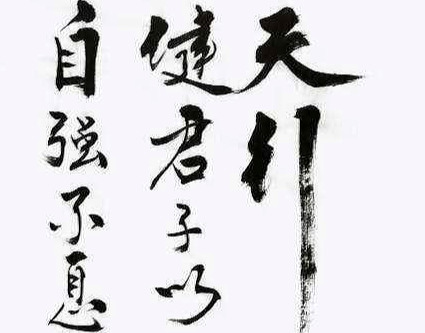 天行
健君子以
自强不息